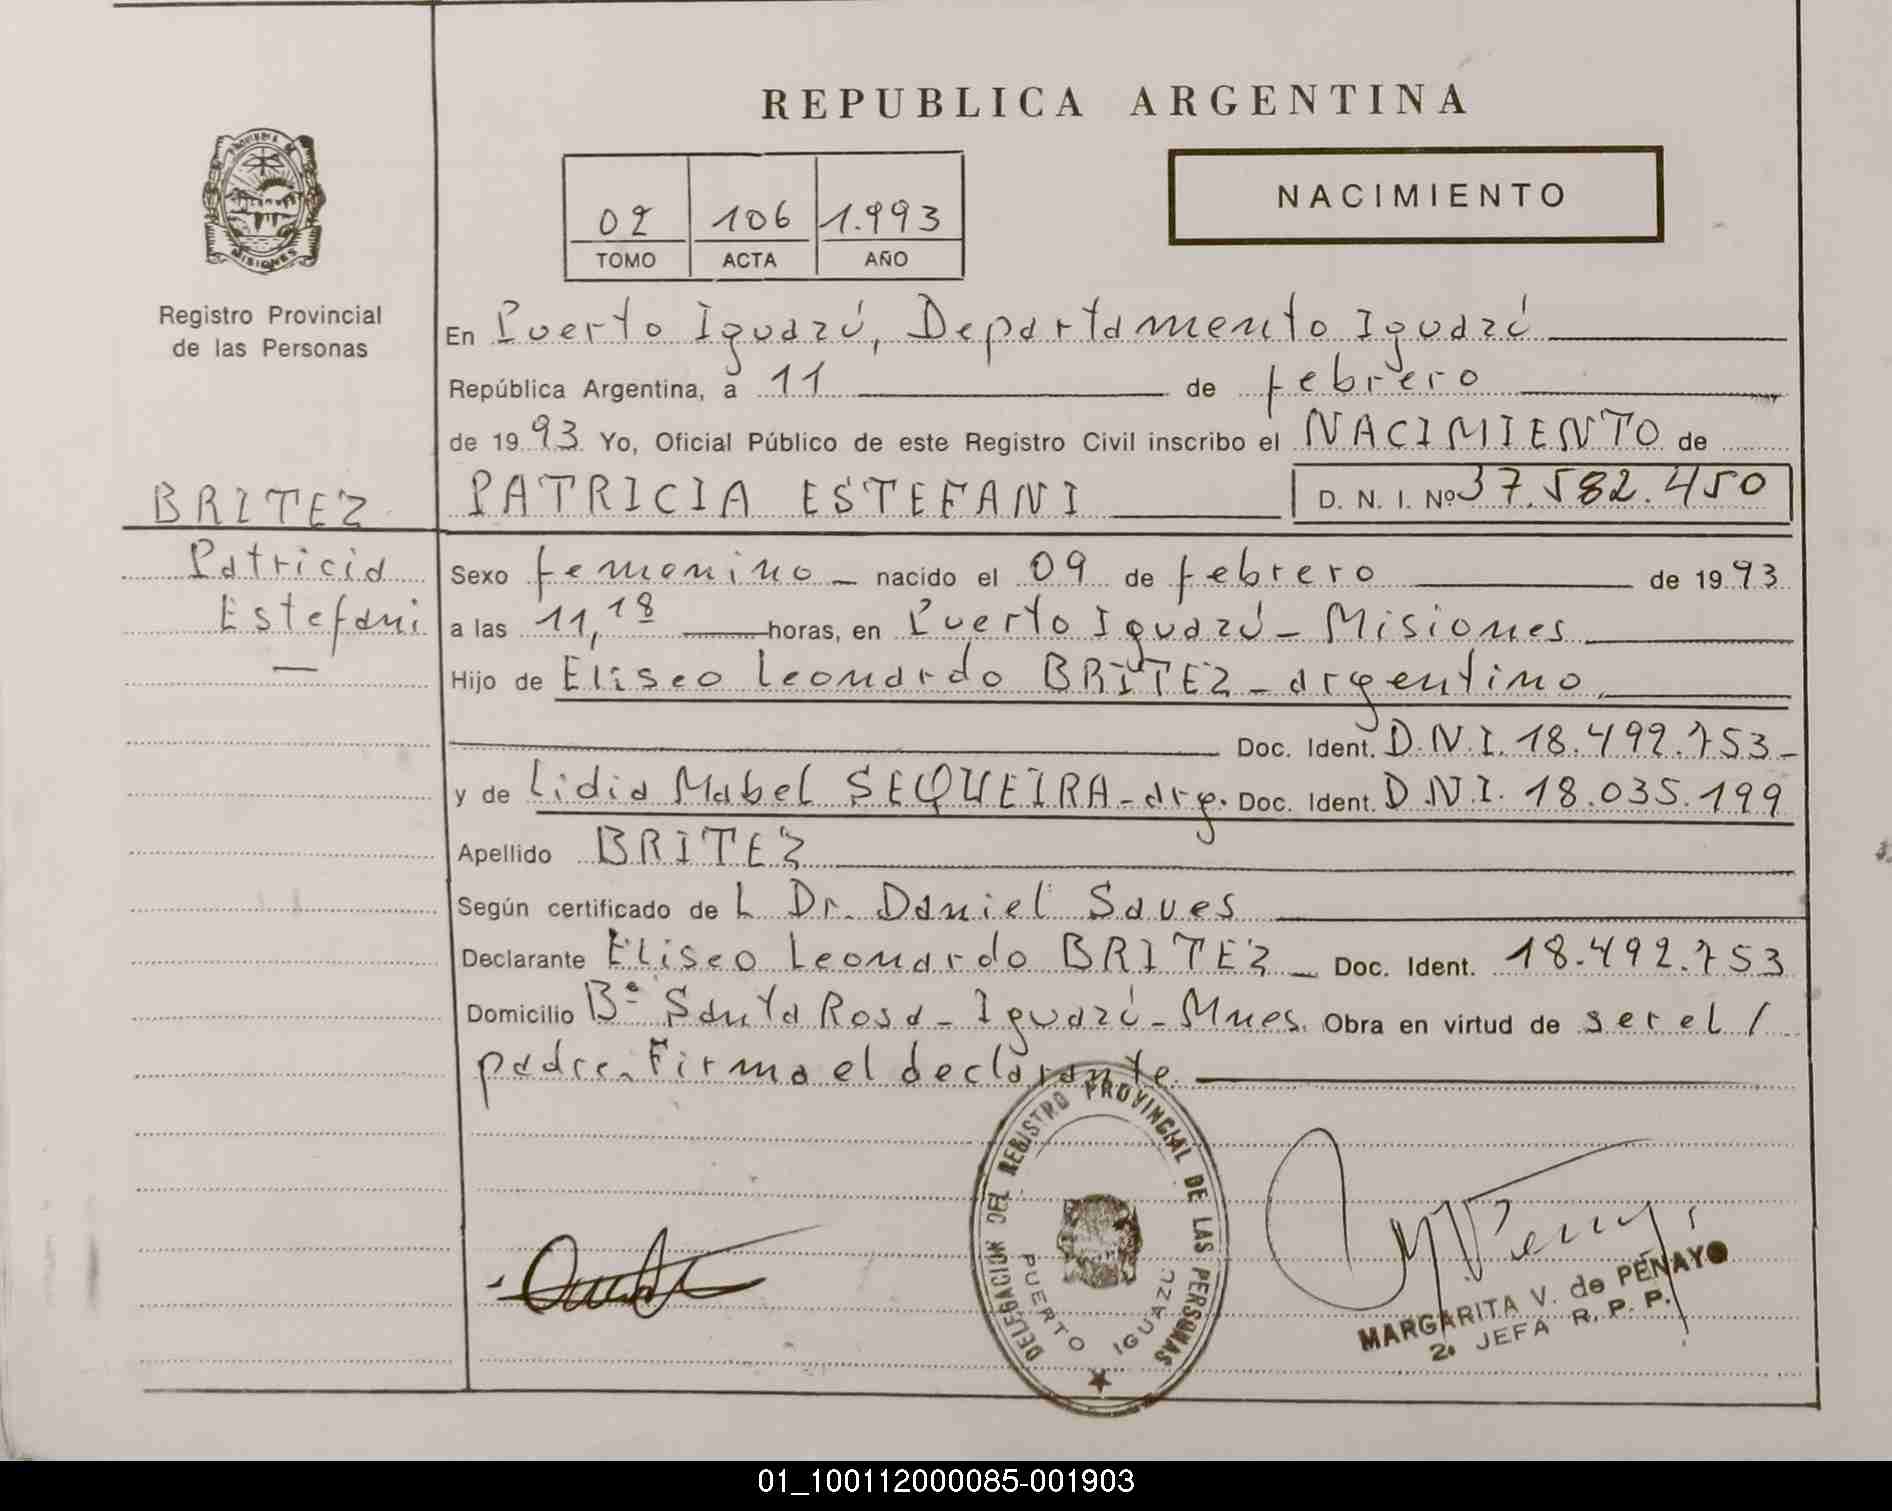 REPUBLICA ARGENTINA
PROVINCIA DE
MISIONES
Registro Provincial
de las Personas
02 106 1.993
TOMO ACTA AÑO
NACIMIENTO
En Puerto Iguazú, Departamento Iguazú
República Argentina, a 11 de febrero
de 1993 Yo, Oficial Público de este Registro Civil inscribo el NACIMIENTO de
BRITEZ
Patricia
Estefani
PATRICIA ESTEFANI D. N. I. Nº 37.582.450
Sexo femenino nacido el 09 de febrero de 1993
a las 11,18 horas, en Puerto Iguazú - Misiones
Hijo de Eliseo Leonardo BRITEZ - argentino
Doc. Ident. D.N.I. 18.492.753-
y de Lidia Mabel SEQUEIRA - arg. Doc. Ident. D.N.I. 18.035.199
Apellido BRITEZ
Según certificado de L Dr. Daniel Saves
Declarante Eliseo Leonardo BRITEZ Doc. Ident. 18.492.753
Domicilio Bº Santa Rosa - Iguazú - Mnes. Obra en virtud de ser el /
padre. Firma el declarante.
DELEGACION DEL REGISTRO PROVINCIAL DE LAS PERSONAS
PUERTO IGUAZU
MARGARITA V. de PENAYO
2. JEFA R. P. P.
01_100112000085-001903